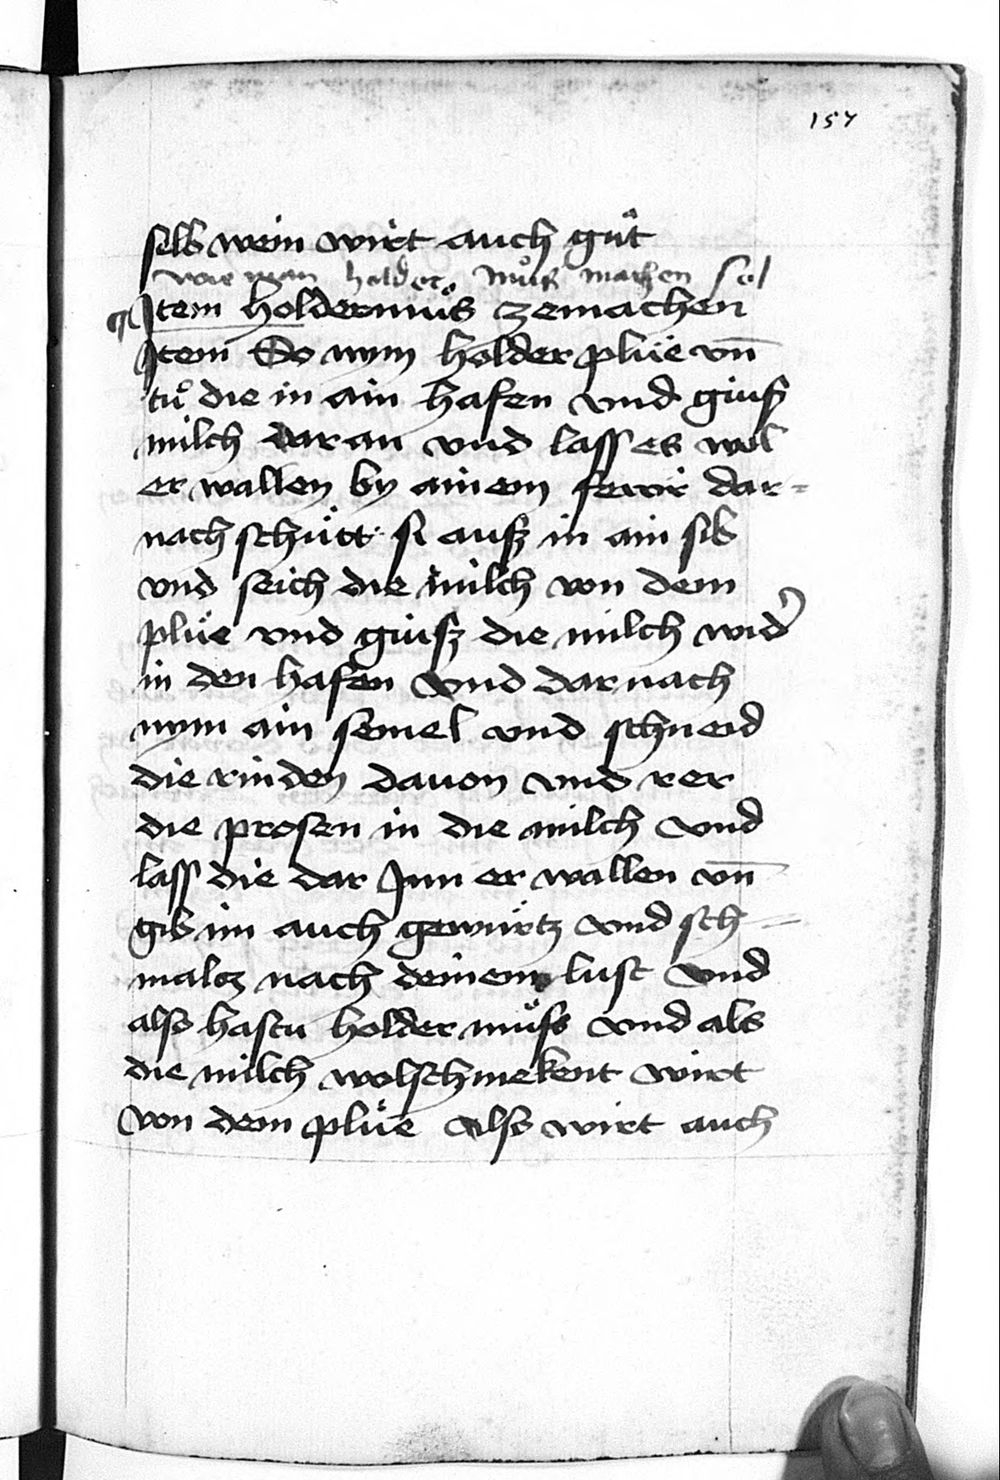 157
selb wein wirt auch guͦt
wie man holder muͦß machen sol
Item holdermuͦs zemachen
Item So nym holder pluͤe vn̄
tuͦ die in ain hafen vnd giuß
milch dar an vnd lass es wol
er wallen by ainem fewr dar=
nach schuͤtt si auß in ain sib
vnd seich die milch von dem
pluͤe vnd giuß die milch wid'
in den hafen Vnd dar nach
nym ain semel vnd schneid
die rinden dauon vnd rer
die prosen in die milch Vnd
lass die dar Inn er wallen vn̄
gib im auch gewürtz vnd sch=
maltz nach deinem lust Vnd
also hastu holder muͤss vnd als
die milch wolschmekent wirt
von dem pluͤe Also wirt auch